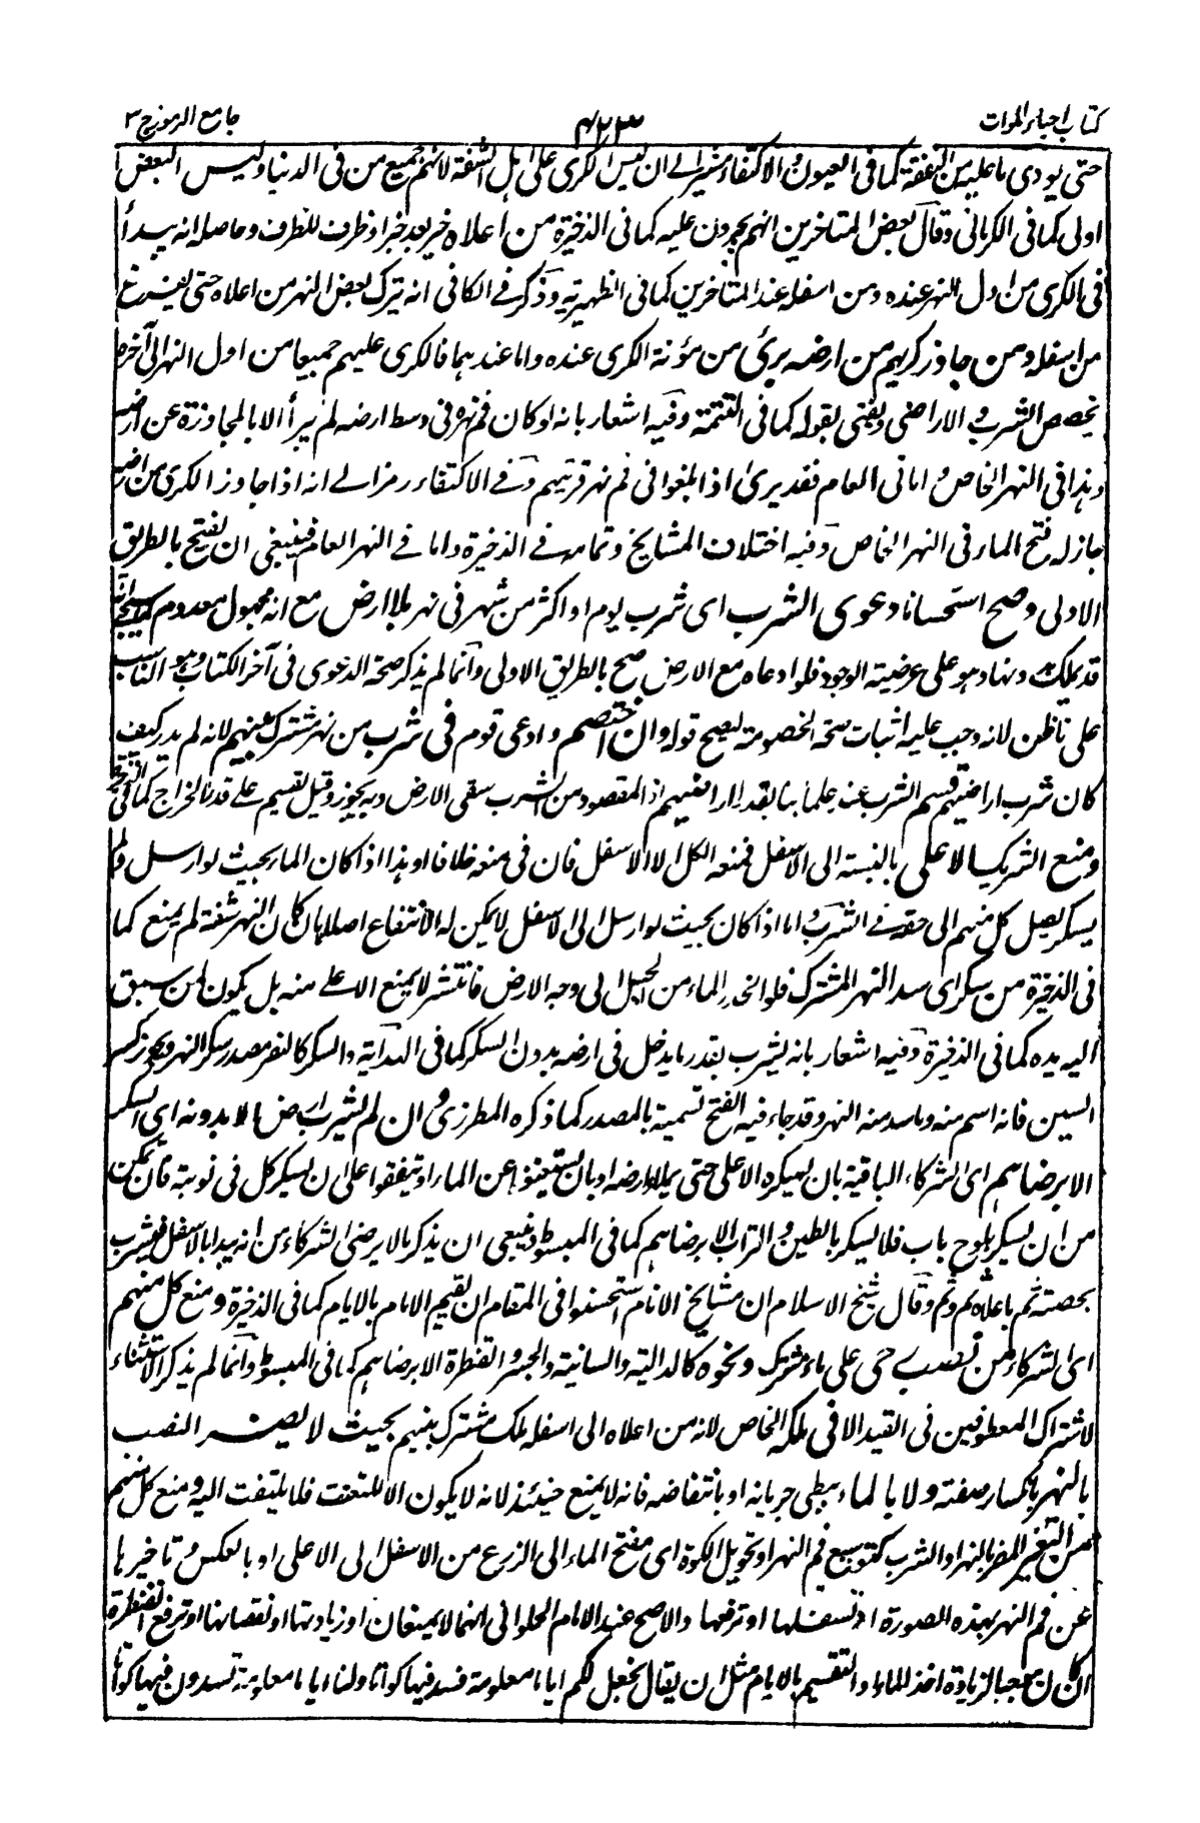 كتاب احياء الموات
٤٢٣
جامع الرموز ج ٣
حتى يودى ما عليه من النفقة كما فى العيون والاكتفاء مشير الى ان ليس الكرى على اهل الشفة لانهم جميع من فى الدنيا وليس البعض
اولى كما فى الكرمانى وقال بعض المتاخرين انهم يجبرون عليه كما فى الذخيرة من اعلاه خبر بعد خبر او ظرف للظرف وحاصله انه يبدأ
فى الكرى من اول النهر عنده ومن اسفله عند المتاخرين كما فى الظهيرية وذكر فى الكافى انه يترك بعض النهر من اعلاه حتى يفرغ
من اسفله ومن جاوز كريهم من ارضه برئ من مؤنة الكرى عنده واما عندهما فالكرى عليهم جميعا من اول النهر الى آخره
بحصص الشرب والاراضى ويفتى بقوله كما فى التتمة وفيه اشعار بانه لو كان فم نهره فى وسط ارضه لم يبرأ الا بالمجاوزة عن ارضه
وهذا فى النهر الخاص واما فى العام فقد برئ اذا بلغوا فى فم نهر قريتهم وفى الاكتفاء رمز الى انه اذا جاوز الكرى من ارضه
جاز له فتح الماء فى النهر الخاص وفيه اختلاف المشايخ وتمامه فى الذخيرة واما فى النهر العام فينبغى ان يفتح بالطريق
الاولى وصح استحسانا دعوى الشرب اى شرب يوم او اكثر من شهر فى نهر بلا ارض مع انه مجهول معدوم
قد يملك وهو على عرضية الوجود فلو ادعاه مع الارض صح بالطريق الاولى وانما لم يذكر صحة الدعوى فى آخر الكتاب وهو المناسب
على ما ظن لانه وجب عليه اثبات صحة الخصومة ليصح قوله وان اختصم وادعى قوم فى شرب من نهر مشترك بينهم لانه لم يدر كيف
كان شرب اراضيهم قسم الشرب عند علمائنا بقدر اراضيهم اذ المقصود من الشرب سقى الارض وبه يجوز وقيل تقسيم على قدر الخراج كما فى
ومنع الشريك الاعلى بالنسبة الى الاسفل فمنعه الكل الا الاسفل فان فى منعه خلافا وهذا اذا كان الماء بحيث لو ارسل
يسكر يصل كل منهم الى حقه فى الشرب واما اذا كان بحيث لو ارسل الى الاسفل لا يمكن له الانتفاع اصلا بان كان النهر شفة لم يمنع كما
فى الذخيرة من سكر اى سد النهر المشترك فلو انحدر الماء من الجبل الى وجه الارض فانتشر لا يمنع الاعلى منه بل يكون لمن سبق
اليه يده كما فى الذخيرة وفيه اشعار بانه يشرب بقدر ما يدخل فى ارضه بدون السكر كما فى الهداية والسكر كالنصر مصدر سكر النهر ويجوز كسر
السين فانه اسم منه وما سد منه النهر وقد جاء فيه الفتح تسمية بالمصدر كما ذكره المطرزى وان لم يشرب ارض الا بدونه اى السكر
الا برضاهم اى الشركاء الباقية بان يسكره الاعلى حتى يملأ ارضه او بان يستغنوا عن الماء او يتفقوا على ان يسكر كل فى نوبته فان تمكن
من ان يسكر بلوح باب فلا يسكر بالطين والتراب الا برضاهم كما فى المبسوط وينبغى ان يذكر بالا يرضى الشركاء من انه يبدأ بالاسفل فيشرب
بحصته ثم باعلاه ثم وثم وقال شيخ الاسلام ان مشايخ الانام استحسنوا فى المقام ان يقيم الامام بالايام كما فى الذخيرة ومنع كل منهم
اى الشركاء من نصب رحى على ماء مشترك ونحوه كالدالية والسانية والجسر والقنطرة الا برضاهم كما فى المبسوط وانما لم يذكر الاستثناء
لاشتراك المعطوفين فى القيد الا فى ملكه الخاص لانه من اعلاه الى اسفله ملك مشترك بينهم بحيث لا يضر النصب
بالنهر بانكسار ضفته ولا بالماء ببطى جريانه او بانتقاضه فانه لا يمنع حينئذ لانه لا يكون الا للتعنت فلا يلتفت اليه ومنع كل منهم
من التغير المضر بالنهر او الشرب كتوسيع فم النهر او تحويل الكوة اى مفتح الماء الى الزرع من الاسفل الى الاعلى او بالعكس وتاخيرها
عن فم النهر بهذه الصورة او تسفلها او ترفعها والاصح عند الامام الحلوانى انهما لا يمنعان او زيادتها او نقصانها او ترفع القنطرة
ان كان موجبا لزيادة اخذ الماء والتقسيم بالايام مثل ان يقال نجعل لكم اياما معلومة فسد فيها كواتنا ولنا اياما معلومة تسدون فيها كواتها